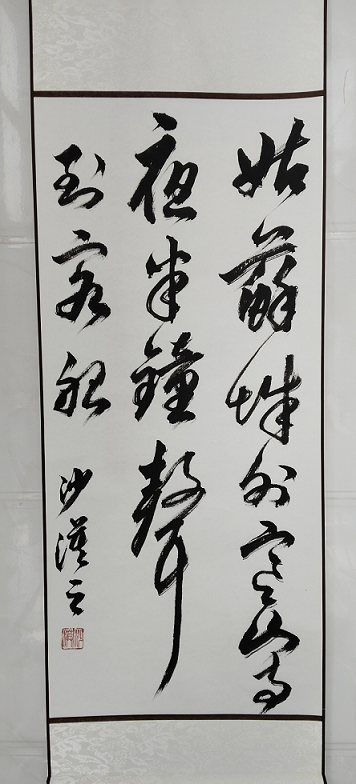 姑蘇城外寒山寺
夜半鐘聲
到客船
沙漢之